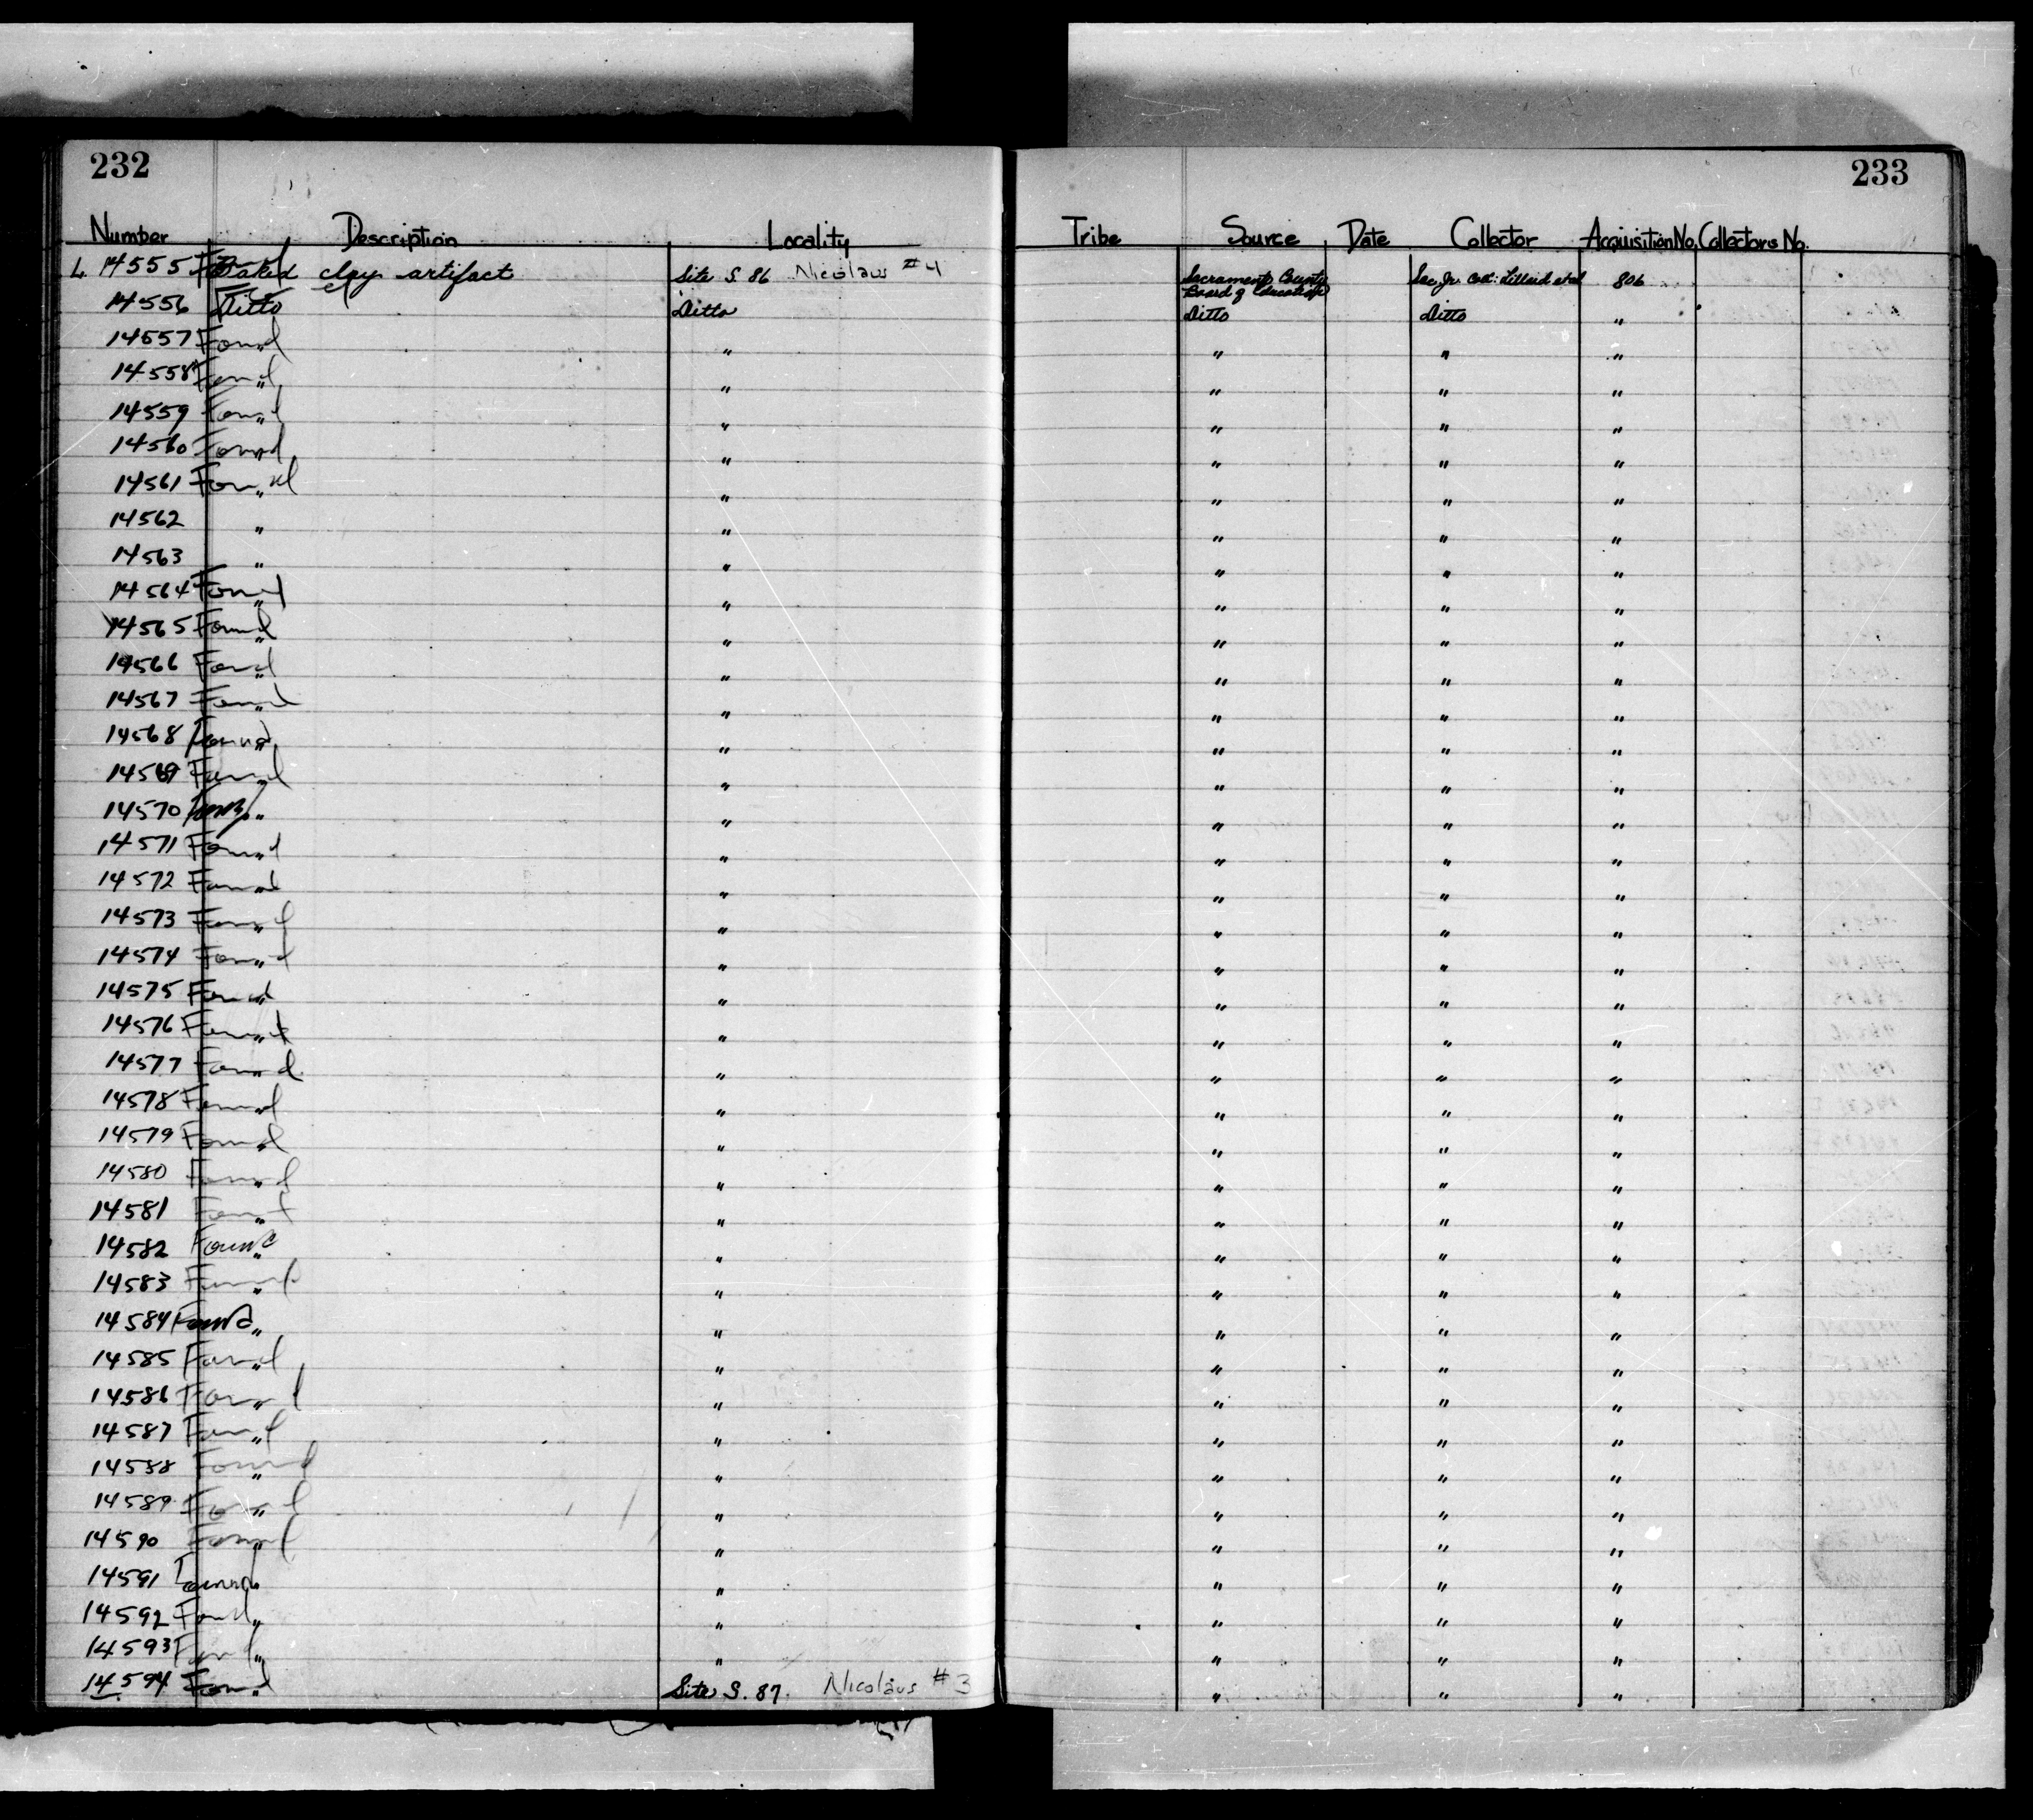 232 233
Number Description Locality Tribe Source Date Collector Acquisition No. Collectors No.
L. 14555 Found Baked clay artifact Site S. 86 Nicolaus #4 Sacramento County Board of Education Sac. Jr. Coll: Lillard et al 806
14556 Ditto Ditto Ditto Ditto "
14557 Found " " " " "
14558 Found " " " " "
14559 Found " " " " "
14560 Found " " " " "
14561 Found " " " " "
14562 " " " " "
14563 " " " " "
14564 Found " " " " "
14565 Found " " " " "
14566 Found " " " " "
14567 Found " " " " "
14568 Found " " " " "
14569 Found " " " " "
14570 Found " " " " "
14571 Found " " " " "
14572 Found " " " " "
14573 Found " " " " "
14574 Found " " " " "
14575 Found " " " " "
14576 Found " " " " "
14577 Found " " " " "
14578 Found " " " " "
14579 Found " " " " "
14580 Found " " " " "
14581 Found " " " " "
14582 Found " " " " "
14583 Found " " " " "
14584 Found " " " " "
14585 Found " " " " "
14586 Found " " " " "
14587 Found " " " " "
14588 Found " " " " "
14589 Found " " " " "
14590 Found " " " " "
14591 Found " " " " "
14592 Found " " " " "
14593 Found " " " " "
14594 Found " Site S. 87. Nicolaus #3 " " "